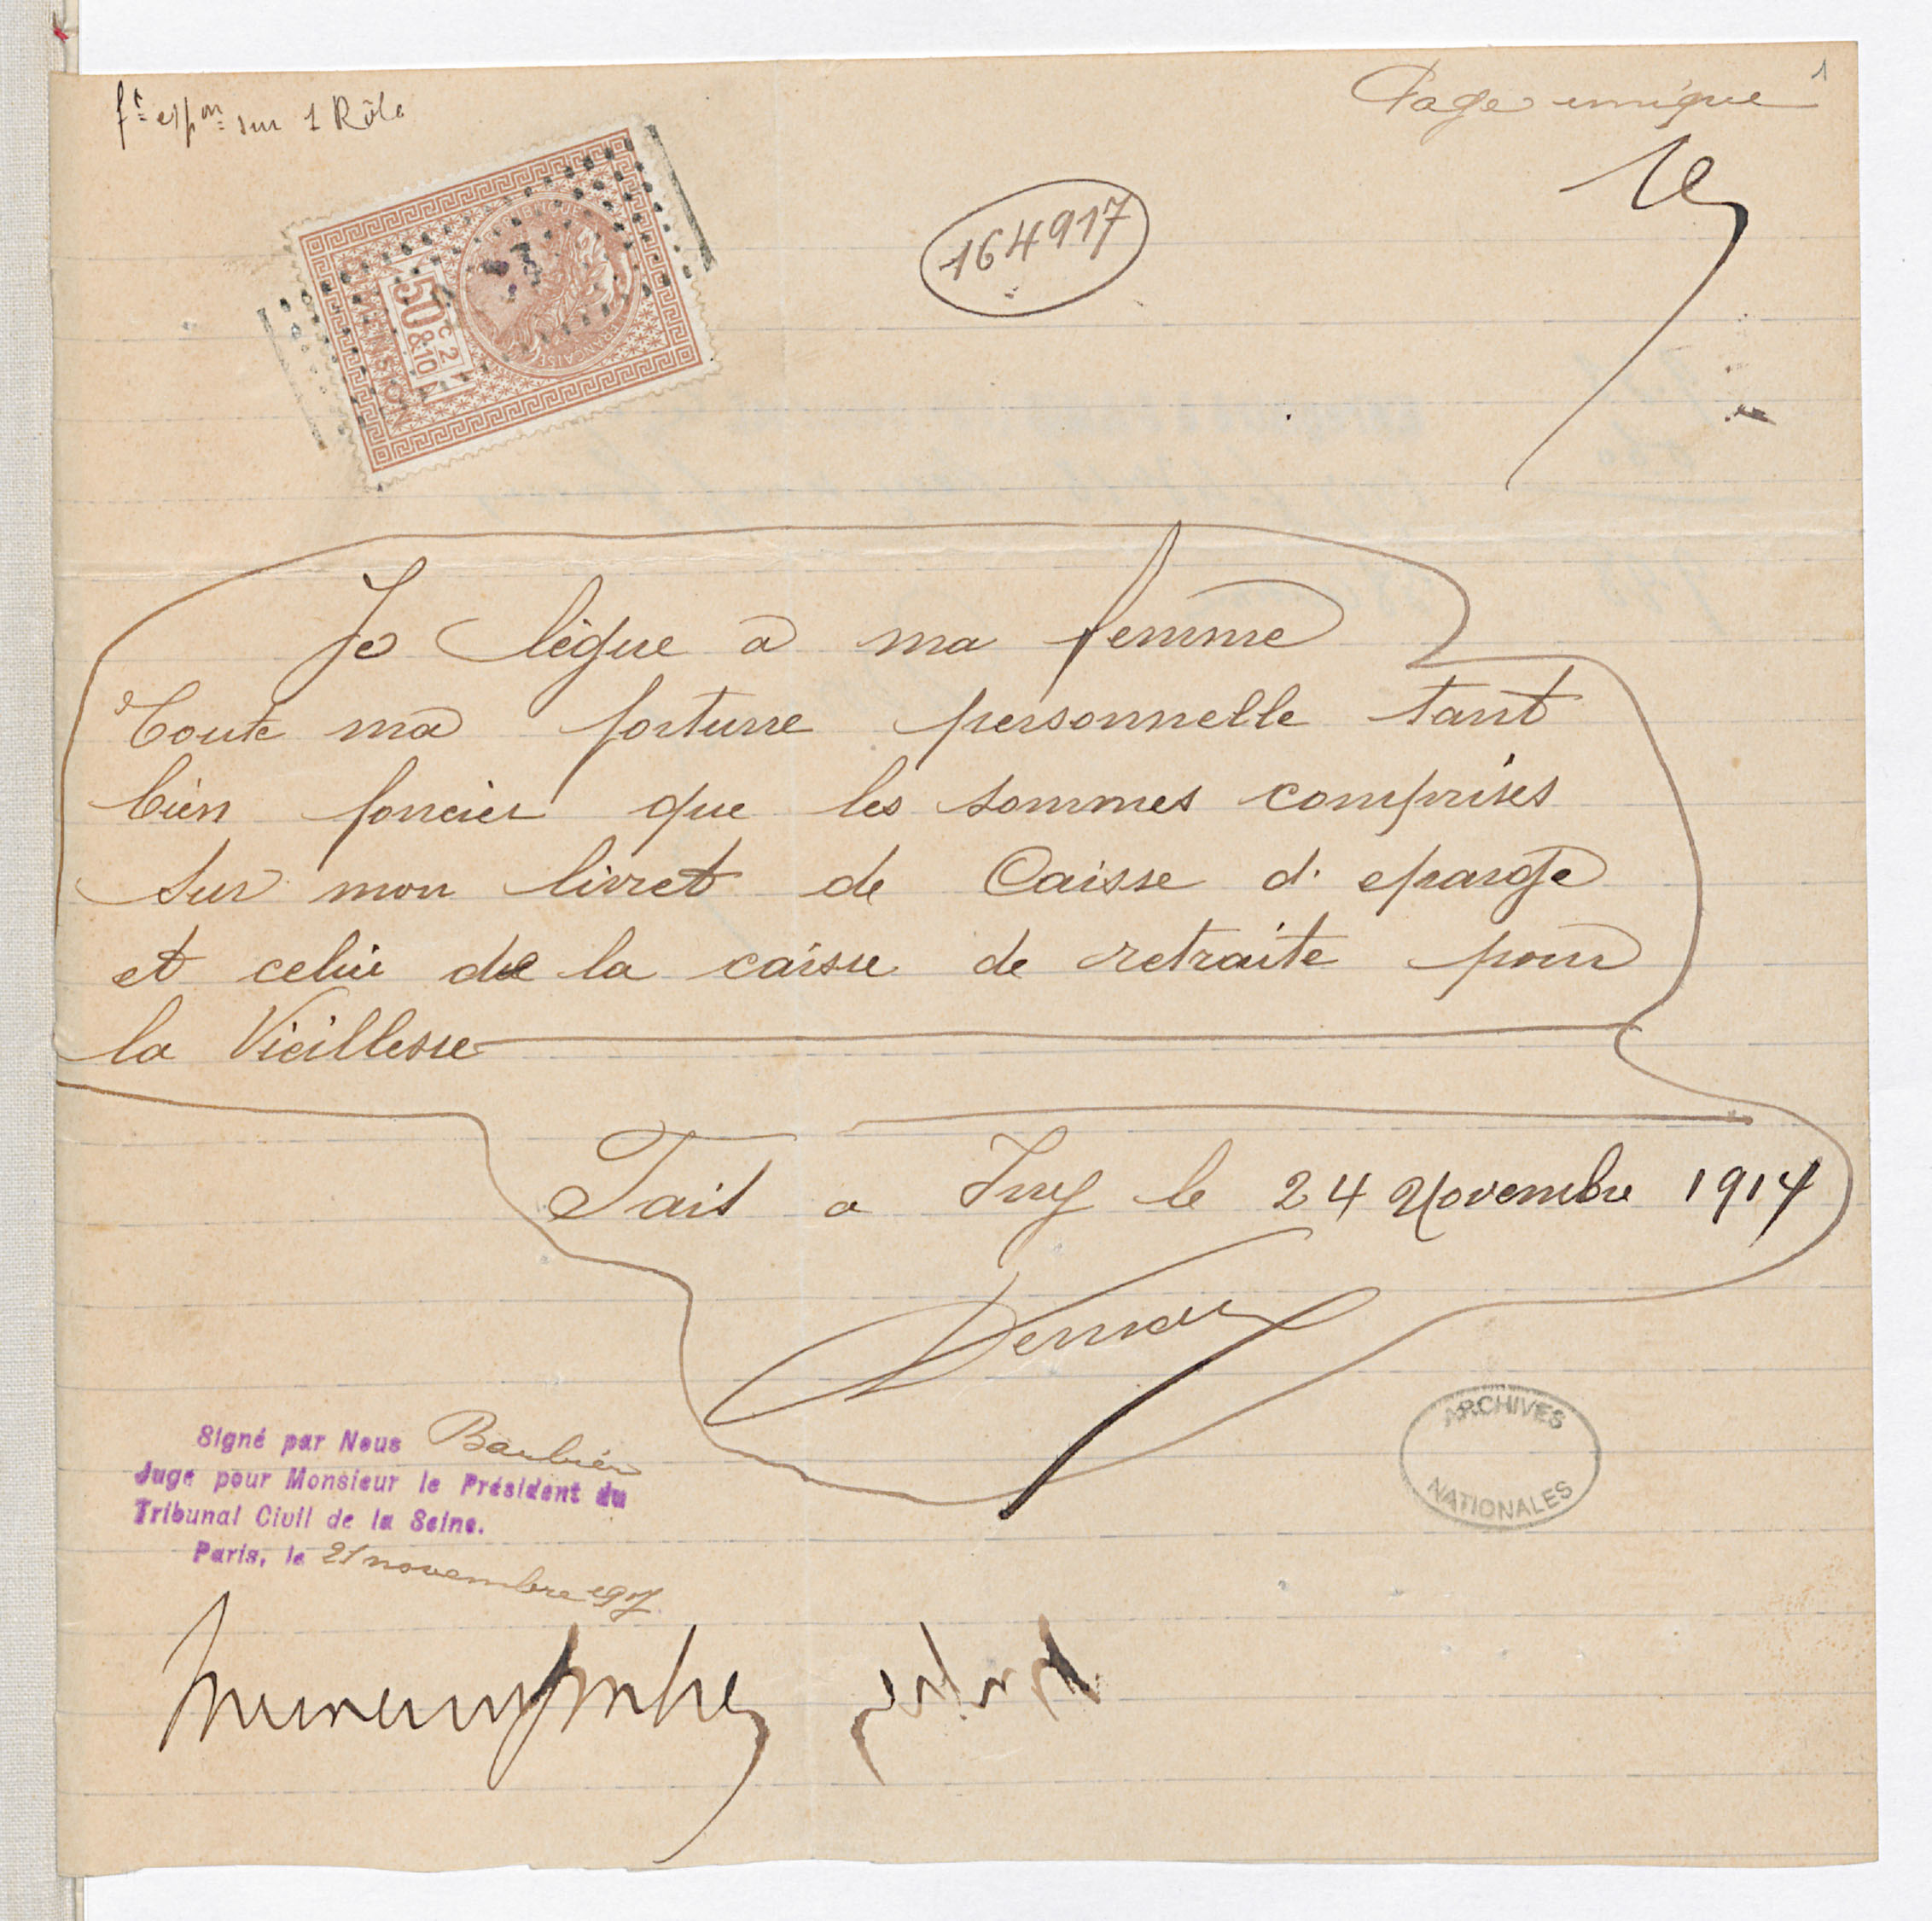 fte expon sur 1 Rôle
Page unique
1
164917
50c & 2/10
DIMENSION
FRANÇAISE
Je lègue à ma femme
Toute ma fortune personnelle tant
bien foncier que les sommes comprises
sur mon livret de Caisse d'eparge
et celui de la caisse de retraite pour
la Vieillesse
Fait a Ivry le 24 Novembre 1914
Signé par Nous Barbier
Juge pour Monsieur le Président du
Tribunal Civil de la Seine.
Paris, le 21 novembre 1917
ARCHIVES
NATIONALES